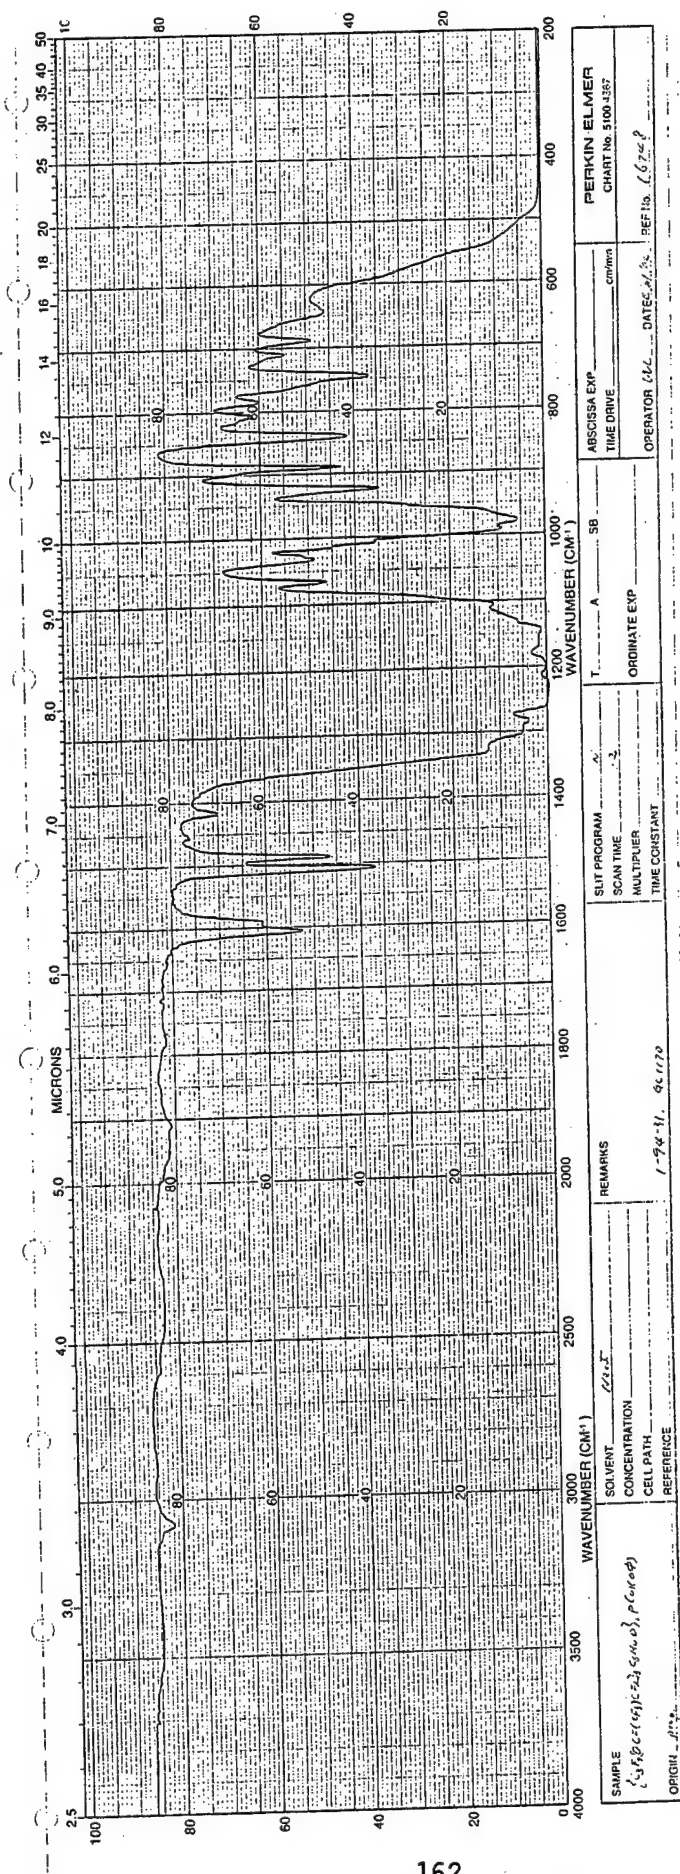 MICRONS
2.5 3.0 4.0 5.0 6.0 7.0 8.0 9.0 10 12 14 16 18 20 25 30 35 40 50
100 80 60 40 20 0
80 60 40 20
80 60 40 20
80 60 40 20
80 60 40 20
80 60 40 20
4000 3500 3000 2500 2000 1800 1600 1400 1200 1000 800 600 400 200
WAVENUMBER (CM⁻¹)
WAVENUMBER (CM⁻¹)
SAMPLE
ORIGIN
SOLVENT
CONCENTRATION
CELL PATH
REFERENCE
REMARKS
1-94-31
SLIT PROGRAM N
SCAN TIME
MULTIPLIER
TIME CONSTANT
T A SB
ORDINATE EXP
ABSCISSA EXP
TIME DRIVE cm/min
OPERATOR DATE REF No.
PERKIN-ELMER
CHART No. 5100-4367
162